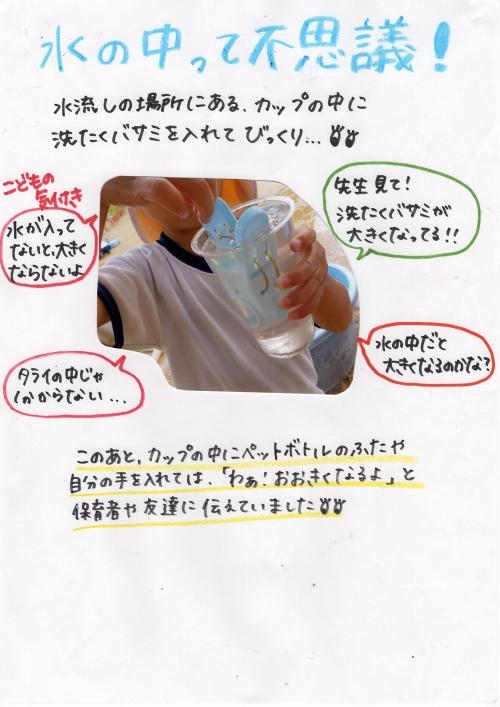 水の中って不思議！
水流しの場所にある、カップの中に
洗たくバサミを入れて びっくり…
こどもの
気付き
水が入って
ないと、大きく
ならないよ
先生見て！
洗たくバサミが
大きくなってる！！
タライの中じゃ
わからない…
水の中だと
大きくなるのかな？
このあと、カップの中にペットボトルのふたや
自分の手を入れては、「わぁ！おおきくなるよ」と
保育者や友達に伝えていました